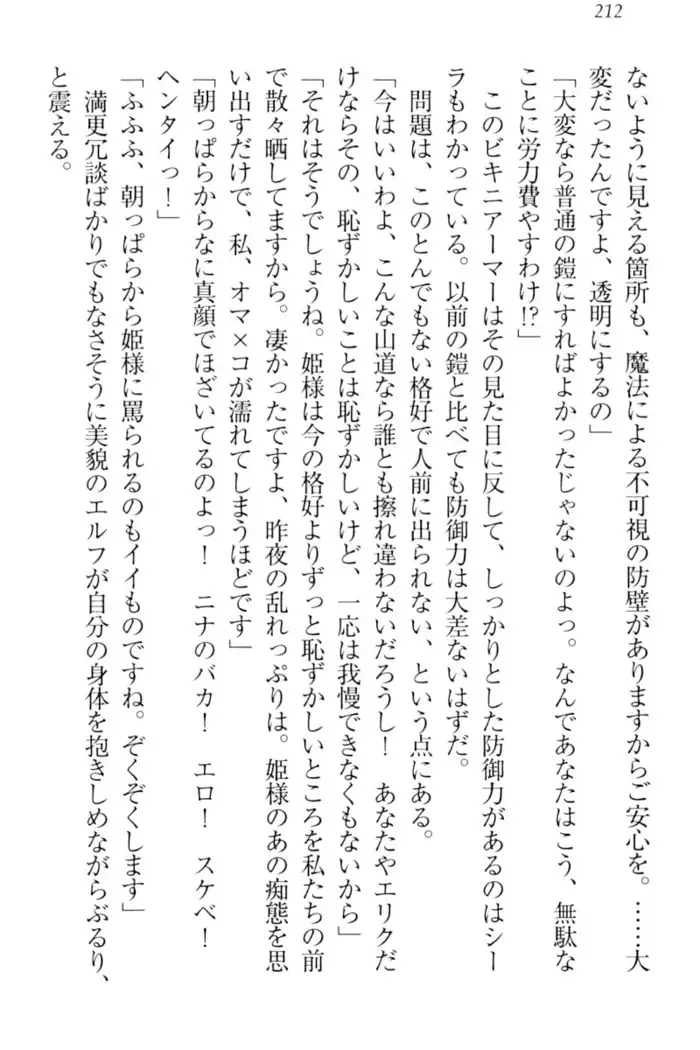 212
ないように見える箇所も、魔法による不可視の防壁がありますからご安心を。……大
変だったんですよ、透明にするの」
「大変なら普通の鎧にすればよかったじゃないのよっ。なんであなたはこう、無駄な
ことに労力費やすわけ!?」
　このビキニアーマーはその見た目に反して、しっかりとした防御力があるのはシー
ラもわかっている。以前の鎧と比べても防御力は大差ないはずだ。
　問題は、このとんでもない格好で人前に出られない、という点にある。
「今はいいわよ、こんな山道なら誰とも擦れ違わないだろうし！　あなたやエリクだ
けならその、恥ずかしいことは恥ずかしいけど、一応は我慢できなくもないから」
「それはそうでしょうね。姫様は今の格好よりずっと恥ずかしいところを私たちの前
で散々晒してますから。凄かったですよ、昨夜の乱れっぷりは。姫様のあの痴態を思
い出すだけで、私、オマ×コが濡れてしまうほどです」
「朝っぱらからなに真顔でほざいてるのよっ！　ニナのバカ！　エロ！　スケベ！
ヘンタイっ！」
「ふふふ、朝っぱらから姫様に罵られるのもイイものですね。ぞくぞくします」
　満更冗談ばかりでもなさそうに美貌のエルフが自分の身体を抱きしめながらぶるり、
と震える。